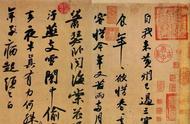 自我来黄州已過三寒
食年〻欲惜春〻去不
容惜今年又苦雨兩月秋
蕭瑟卧聞海棠花泥
汙燕支雪闇中偷負
去夜半真有力何殊
年子病起頭已白